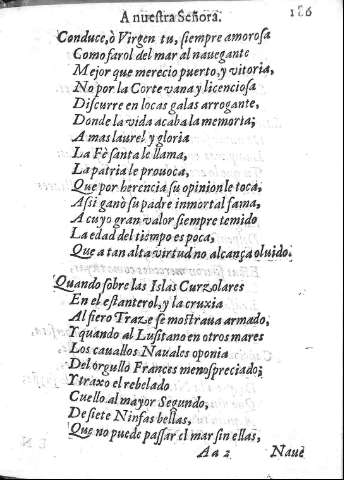 A nuestra Señora. 186
Conduce, ò Virgen tu, siempre amorosa
Como farol del mar al nauegante
Mejor que merecio puerto, y vitoria,
No por la Corte vana y licenciosa
Discurre en locas galas arrogante,
Donde la vida acaba la memoria;
A mas laurel y gloria
La Fè santa le llama,
La patria le prouoca,
Que por herencia su opinion le toca,
Assi ganò su padre inmortal fama,
A cuyo gran valor siempre temido
La edad del tiempo es poca,
Que a tan alta virtud no alcança oluido.
Quando sobre las Islas Curzolares
En el estanterol, y la cruxia
Al fiero Traze se mostraua armado,
Y quando al Lusitano en otros mares
Los cauallos Nauales oponia
Del orgullo Frances menospreciado;
Y traxo el rebelado
Cuello al mayor Segundo,
De siete Ninfas bellas,
Que no puede passar el mar sin ellas,
Aa 2 Naue